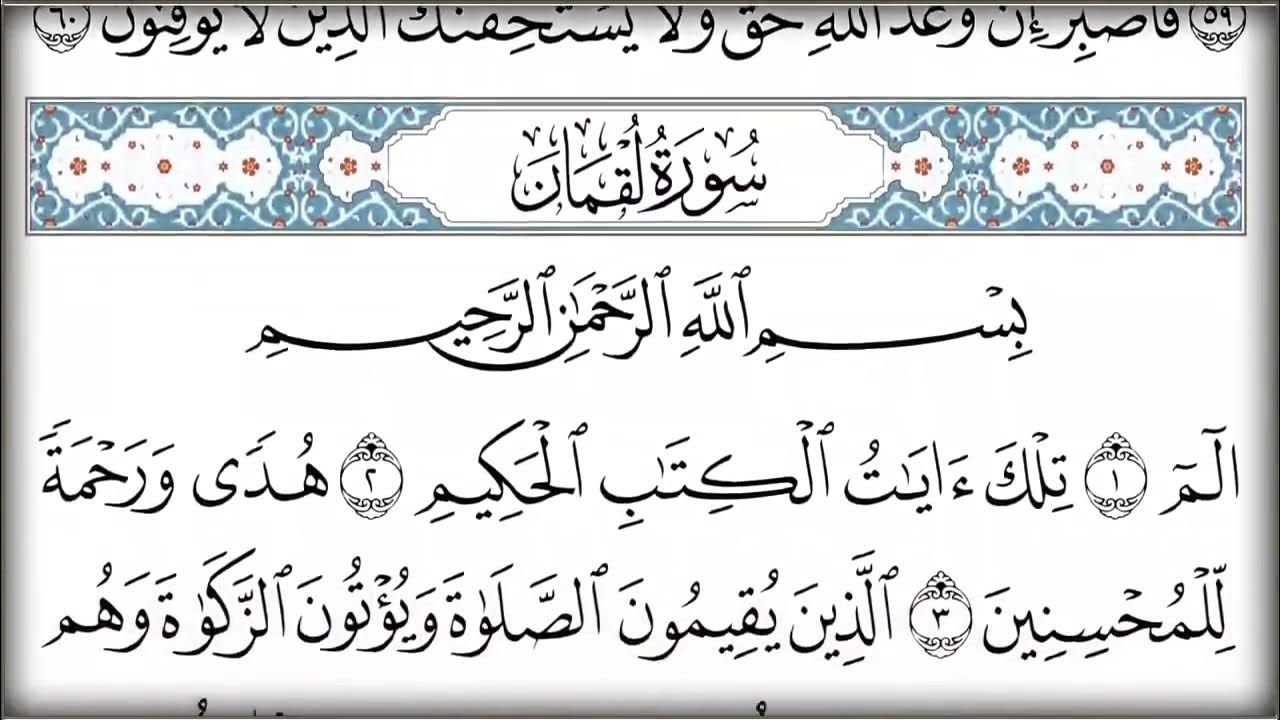 ﴿٥٩﴾ فَاصْبِرْ إِنَّ وَعْدَ اللَّهِ حَقٌّ وَلَا يَسْتَخِفَّنَّكَ الَّذِينَ لَا يُوقِنُونَ ﴿٦٠﴾
سُورَةُ لُقْمَانَ
بِسْمِ ٱللَّهِ ٱلرَّحْمَٰنِ ٱلرَّحِيمِ
الٓمٓ ﴿١﴾ تِلْكَ ءَايَٰتُ ٱلْكِتَٰبِ ٱلْحَكِيمِ ﴿٢﴾ هُدًى وَرَحْمَةً
لِّلْمُحْسِنِينَ ﴿٣﴾ ٱلَّذِينَ يُقِيمُونَ ٱلصَّلَوٰةَ وَيُؤْتُونَ ٱلزَّكَوٰةَ وَهُم